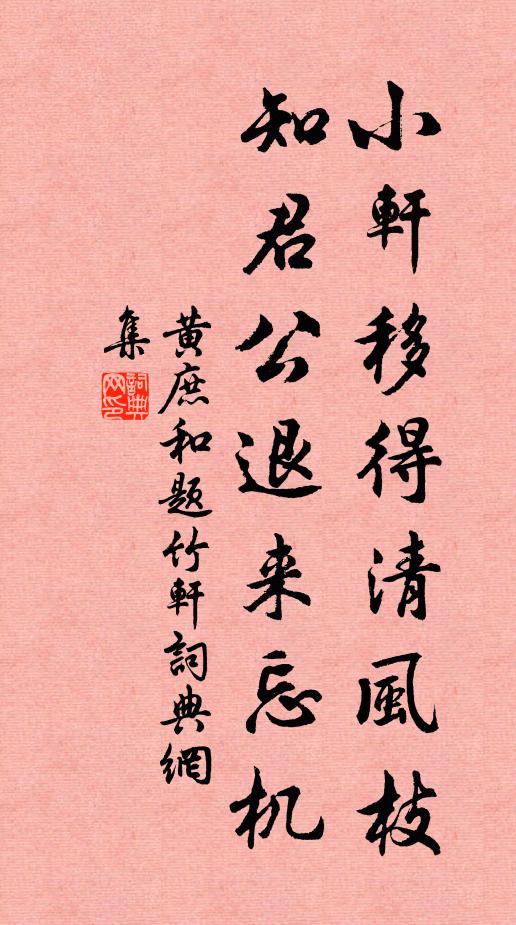 小軒移得清風枝
知君公退来忘机
黄庶和題竹軒詞典網
集
詞典
网印